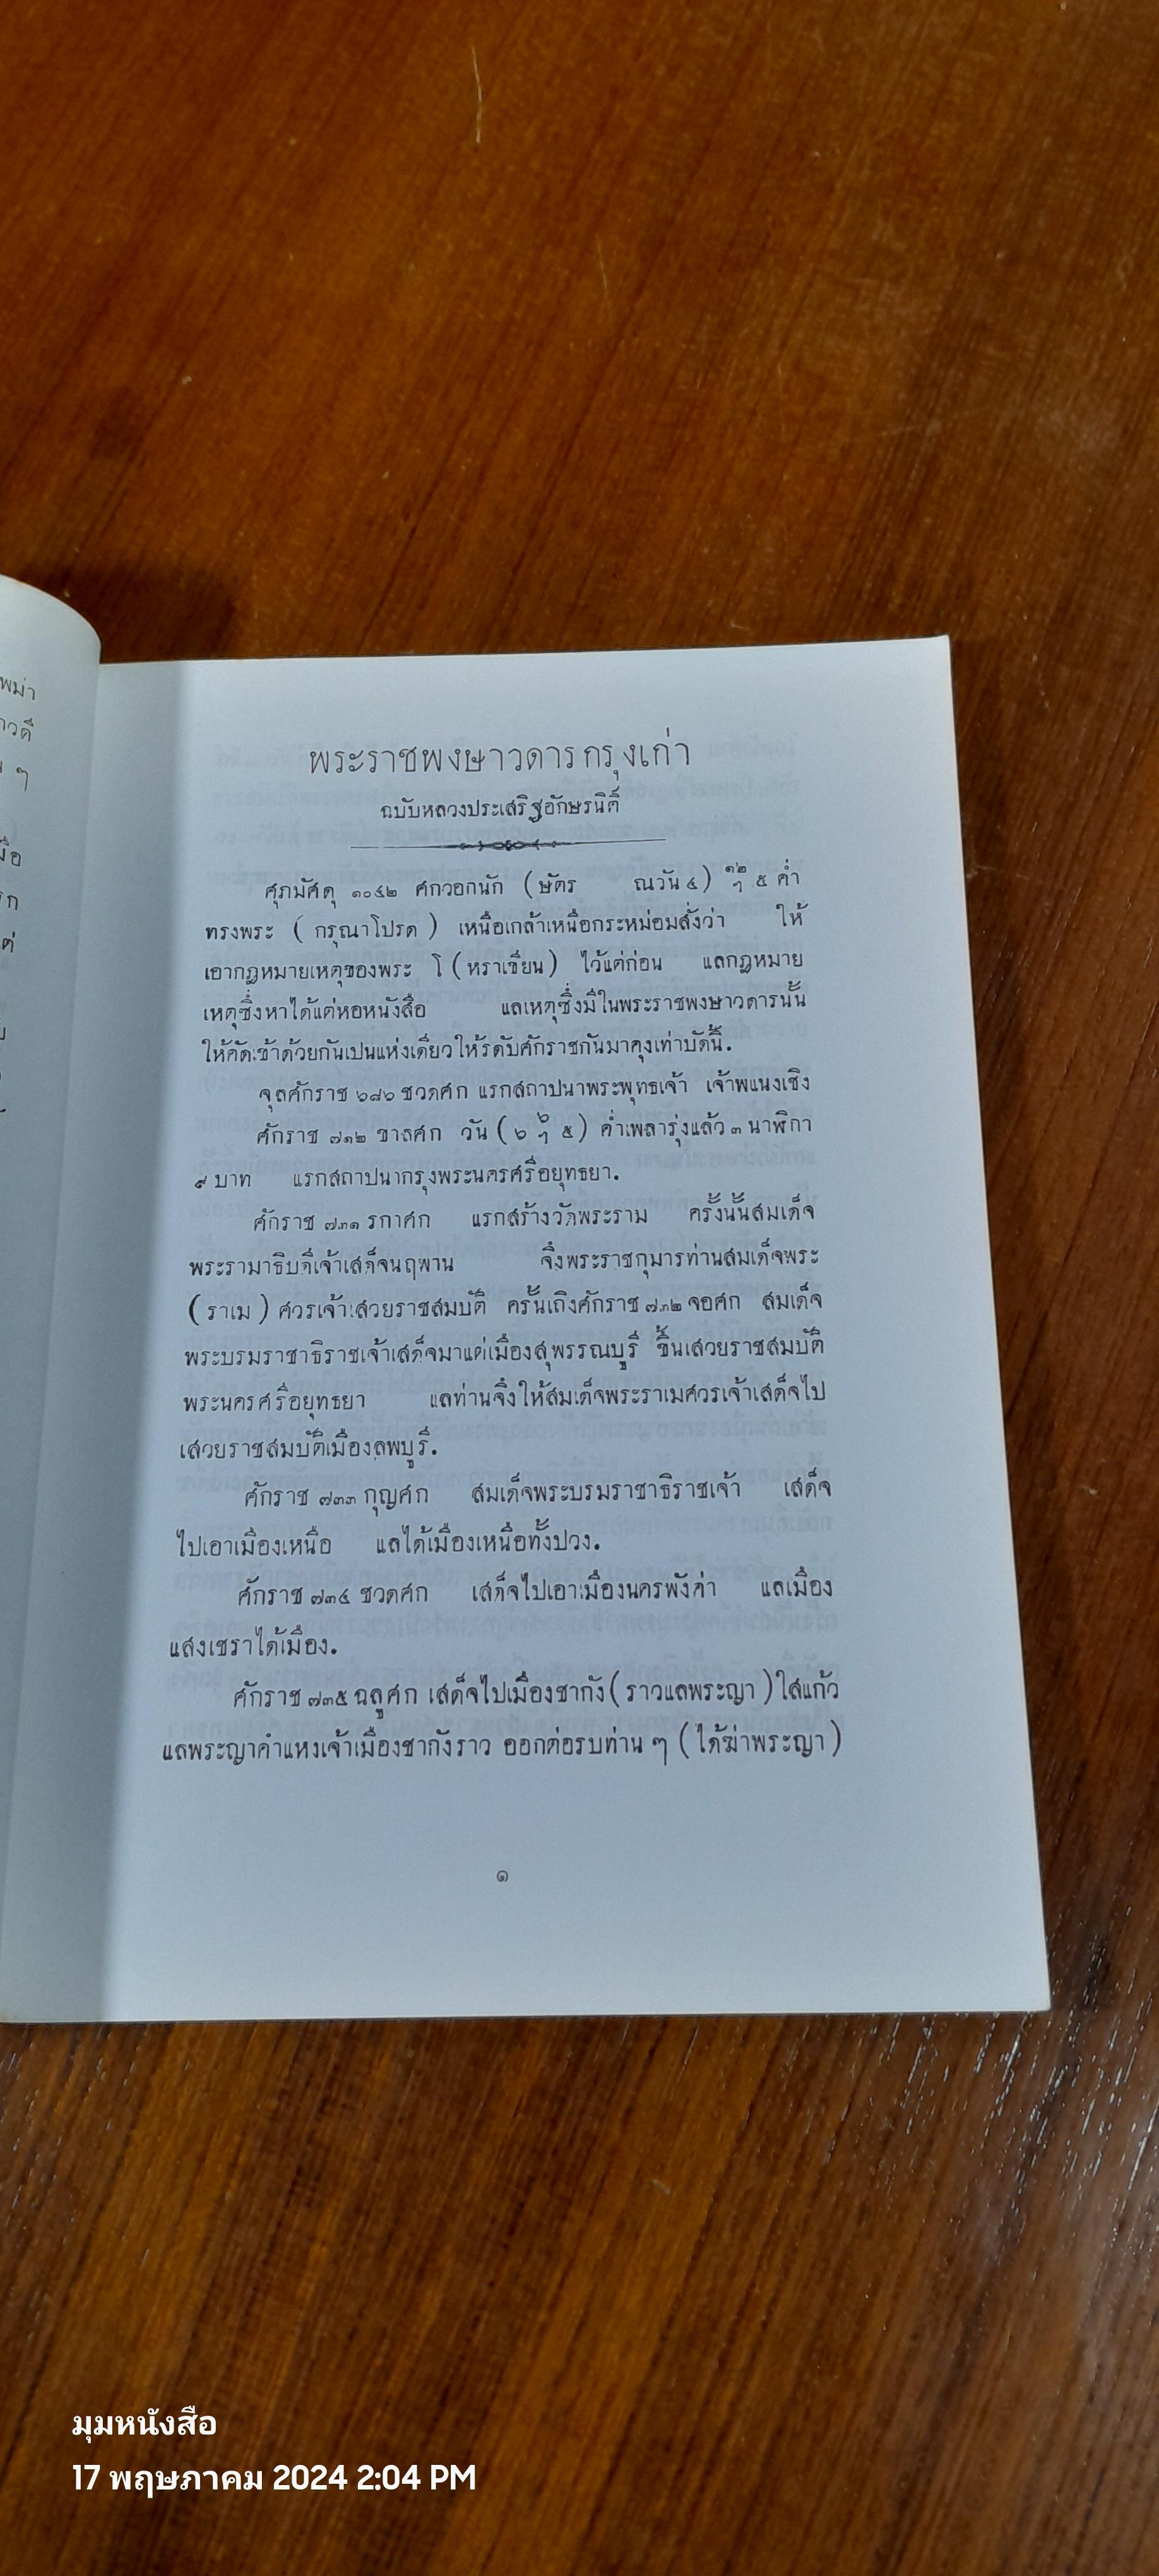 พม่า
าวดี
ๆ
พระราชพงษาวดารกรุงเก่า
ฉบับหลวงประเสริฐอักษรนิติ์
ศุภมัศดุ ๑๐๔๒ ศกวอกนัก (ษัตร ณวัน ๔) ๑๒ ฯ ๕ ค่ำ
ทรงพระ (กรุณาโปรด) เหนือเกล้าเหนือกระหม่อมสั่งว่า ให้
เอากฎหมายเหตุของพระ โ (หราเขียน) ไว้แต่ก่อน แลกฎหมาย
เหตุซึ่งหาได้แต่หอหนังสือ แลเหตุซึ่งมีในพระราชพงษาวดารนั้น
ให้คัดเข้าด้วยกันเปนแห่งเดียวให้รดับศักราชกันมาคุงเท่าบัดนี้.
จุลศักราช ๖๘๖ ชวดศก แรกสถาปนาพระพุทธเจ้า เจ้าพแนงเชิง
ศักราช ๗๑๒ ขาลศก วัน (๖ ๖ ฯ ๕) ค่ำเพลารุ่งแล้ว ๓ นาฬิกา
๙ บาท แรกสถาปนากรุงพระนครศรีอยุทธยา.
ศักราช ๗๓๑ รกาศก แรกสร้างวัดพระราม ครั้งนั้นสมเด็จ
พระรามาธิบดีเจ้าเสด็จนฤพาน จึงพระราชกุมารท่านสมเด็จพระ
(ราเม) ศวรเจ้าเสวยราชสมบัติ ครั้นเถิงศักราช ๗๓๒ จอศก สมเด็จ
พระบรมราชาธิราชเจ้าเสด็จมาแต่เมืองสุพรรณบูรี ขึ้นเสวยราชสมบัติ
พระนครศรีอยุทธยา แลท่านจึงให้สมเด็จพระราเมศวรเจ้าเสด็จไป
เสวยราชสมบัติเมืองลพบูรี.
ศักราช ๗๓๓ กุญศก สมเด็จพระบรมราชาธิราชเจ้า เสด็จ
ไปเอาเมืองเหนือ แลได้เมืองเหนือทั้งปวง.
ศักราช ๗๓๔ ชวดศก เสด็จไปเอาเมืองนครพังค่า แลเมือง
แสงเชราได้เมือง.
ศักราช ๗๓๕ ฉลูศก เสด็จไปเมืองชากัง (ราวแลพระญา) ใสแก้ว
แลพระญาคำแหงเจ้าเมืองชากังราว ออกต่อรบท่าน ๆ (ได้ฆ่าพระญา)
๑
มุมหนังสือ
17 พฤษภาคม 2024 2:04 PM